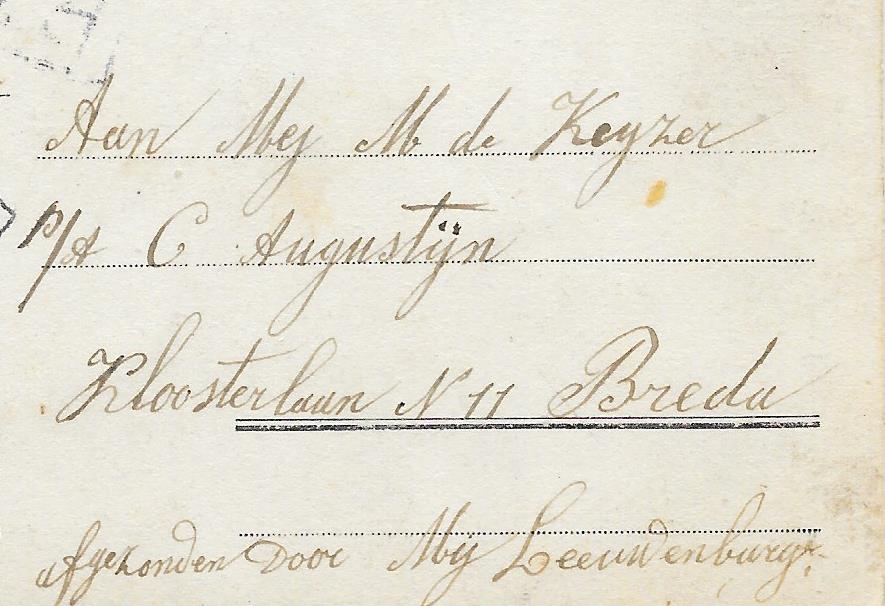 Aan Mej M de Keyzer
p/A C Augustijn
Kloosterlaan N 11 Breda
afgezonden Door Mij Leeuwenburgh